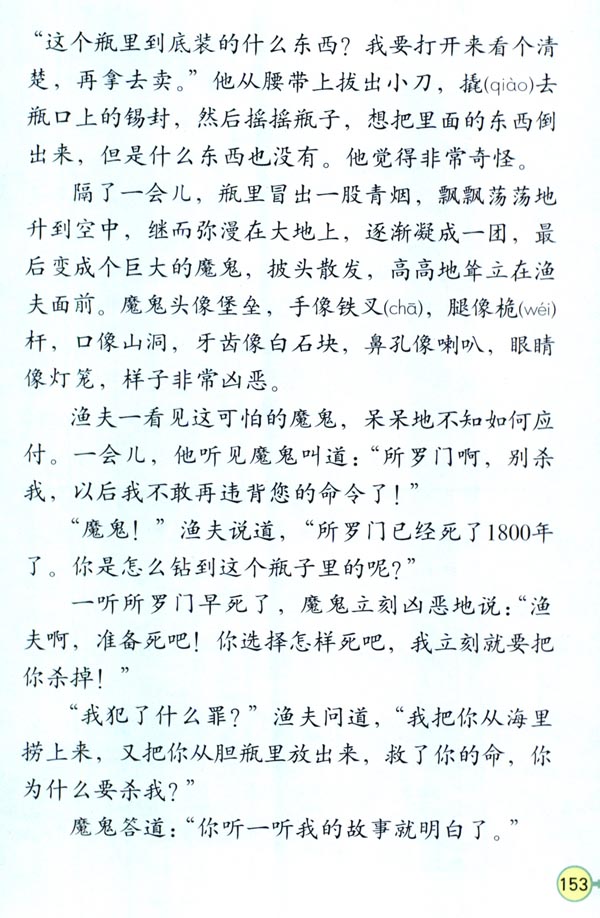 “这个瓶里到底装的什么东西？我要打开来看个清
楚，再拿去卖。”他从腰带上拔出小刀，撬(qiào)去
瓶口上的锡封，然后摇摇瓶子，想把里面的东西倒
出来，但是什么东西也没有。他觉得非常奇怪。
隔了一会儿，瓶里冒出一股青烟，飘飘荡荡地
升到空中，继而弥漫在大地上，逐渐凝成一团，最
后变成个巨大的魔鬼，披头散发，高高地耸立在渔
夫面前。魔鬼头像堡垒，手像铁叉(chā)，腿像桅(wéi)
杆，口像山洞，牙齿像白石块，鼻孔像喇叭，眼睛
像灯笼，样子非常凶恶。
渔夫一看见这可怕的魔鬼，呆呆地不知如何应
付。一会儿，他听见魔鬼叫道：“所罗门啊，别杀
我，以后我不敢再违背您的命令了！”
“魔鬼！”渔夫说道，“所罗门已经死了1800年
了。你是怎么钻到这个瓶子里的呢？”
一听所罗门早死了，魔鬼立刻凶恶地说：“渔
夫啊，准备死吧！你选择怎样死吧，我立刻就要把
你杀掉！”
“我犯了什么罪？”渔夫问道，“我把你从海里
捞上来，又把你从胆瓶里放出来，救了你的命，你
为什么要杀我？”
魔鬼答道：“你听一听我的故事就明白了。”
153